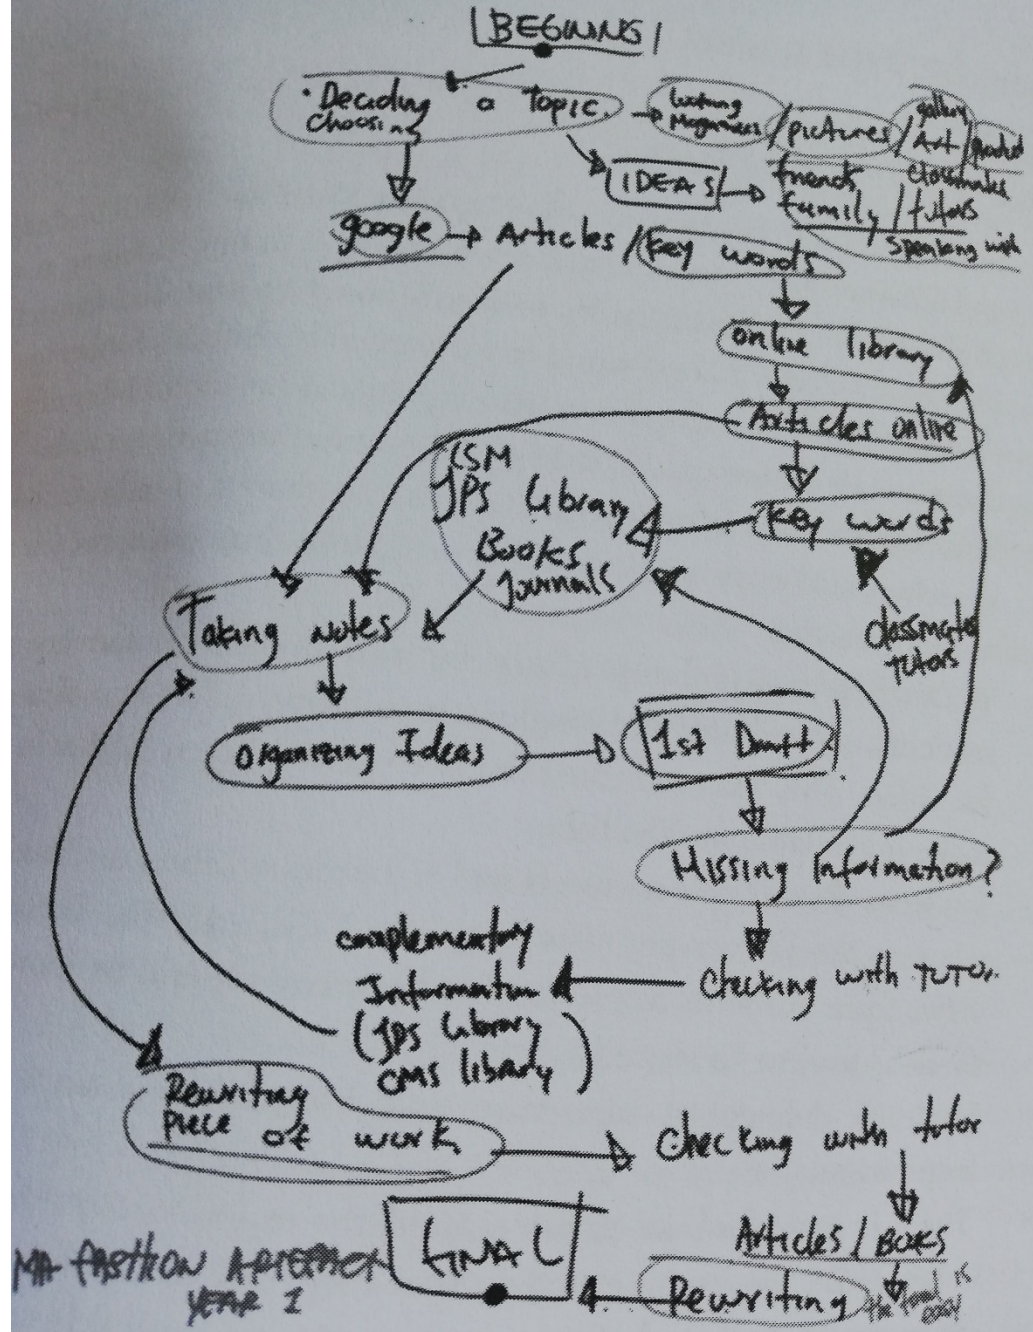 BEGINING
• Deciding a Topic.
choosing
looking
Magazines / pictures / gallery Art /
IDEAS
friends classmates
family / tutors
speaking with
google Articles / key words
online library
Articles online
CSM
JPS library
Books
Journals
key words
classmates
tutors
Taking notes
Organizing Ideas
1st Draft.
Missing Information?
checking with TUTOR.
complementary
Information
(JPS library
CMS library)
Rewriting
piece of work
checking with tutor
Articles / BOOKS
Rewriting
the is
FINAL
MA FASHION
YEAR 1